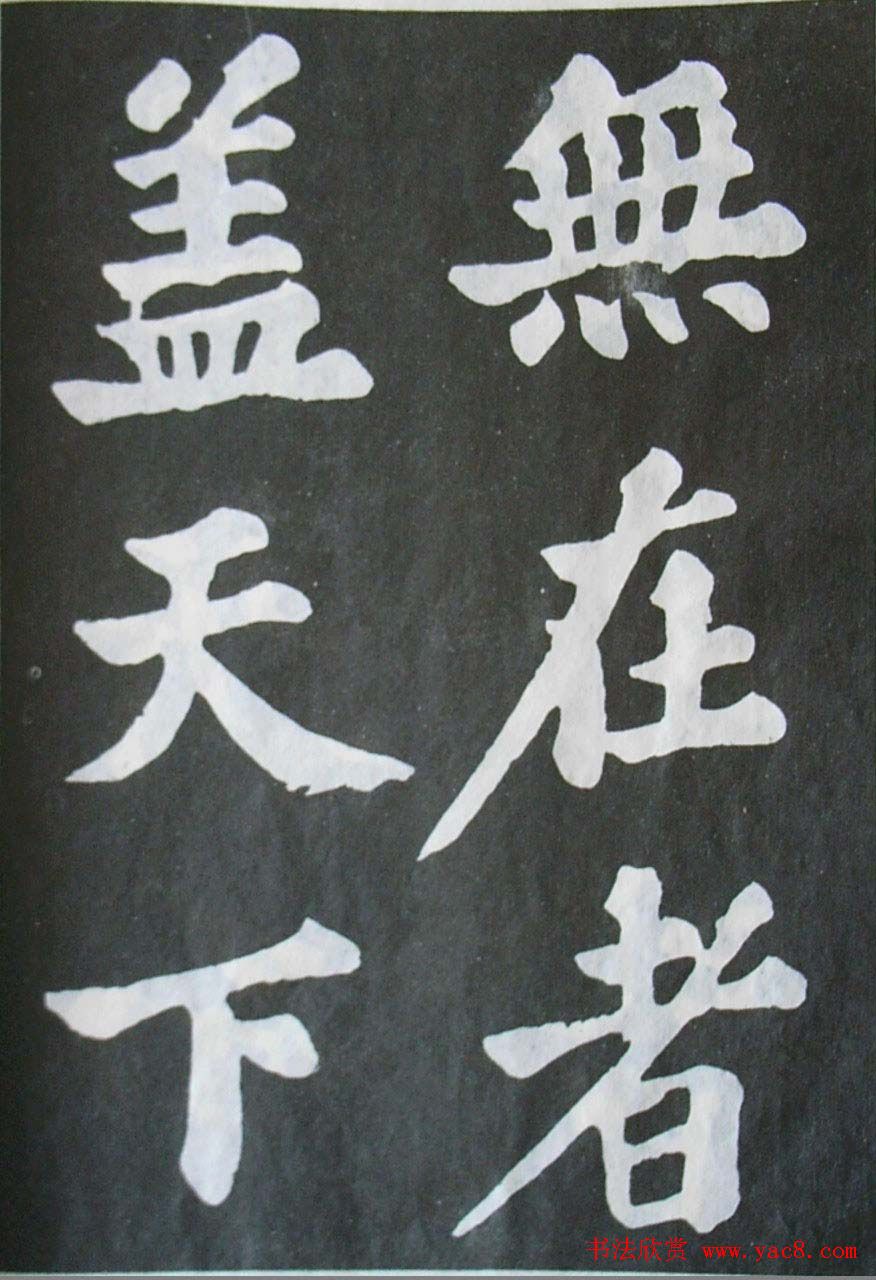 無在者
盖天下
书法欣赏 www.yac8.com